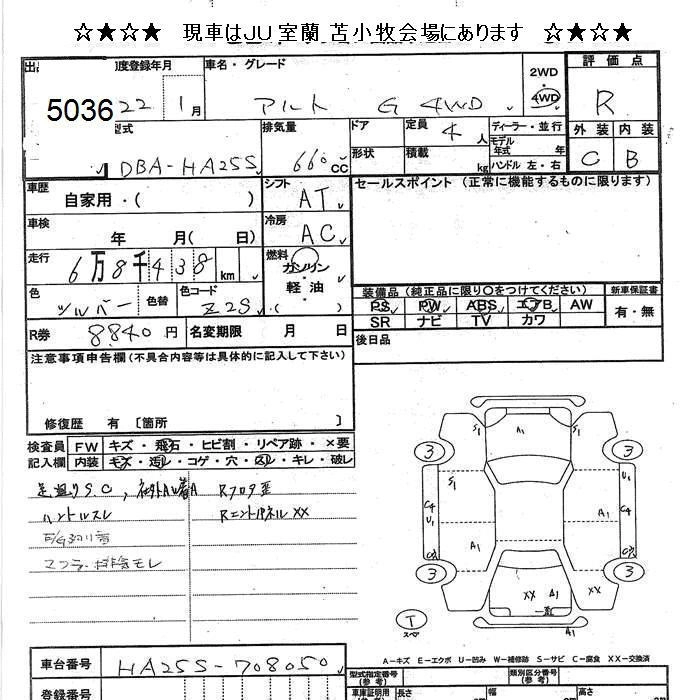 ☆★☆★ 現車はJU室蘭 苫小牧会場にあります ☆★☆★
出 初度登録年月 車名・グレード 2WD 評価点
5036 22 1月 アルト G 4WD 4WD R
型式 排気量 ドア 定員 4人 ディーラー・並行 外装 内装
DBA-HA25S 660cc 形状 積載 kg モデル年式 年 ハンドル 左・右 C B
車歴 自家用・( ) シフト AT セールスポイント (正常に機能するものに限ります)
車検 年 月( 日) 冷房 AC
走行 6万8千438 km 燃料 ガソリン 軽油 ・( )
色 シルバー 色替 色コード Z2S
装備品 (純正品に限り○をつけてください) 新車保証書
PS PW ABS エアB AW 有・無
SR ナビ TV カワ
R券 8840円 名変期限 月 日 後日品
注意事項申告欄(不具合内容等は具体的に記入して下さい)
修復歴 有 [箇所 ]
検査員 FW キズ・飛石・ヒビ割・リペア跡・×要
記入欄 内装 キズ・汚レ・コゲ・穴・スレ・キレ・破レ
足廻りS.C Rフロア歪
ハンドルスレ Rエンドパネルxx
マフラー排気モレ
S1 A1 S1
3 3
S1
C4 U1 A1 C4
A1
3 3
xx A1 xx
T スペア A1
A-キズ E-エクボ U-凹み W-補修跡 S-サビ C-腐食 XX-交換済
車台番号 HA25S-708050 型式指定番号(参考) 類別区分番号(参考)
登録番号 車庫証明用(参考) 長さ 幅 高さ